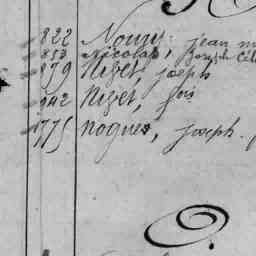 822 Nougy. jean m
853 Nicolas, Joseph Cél
879 Nizet, joseph
942 Nizet, fois
1775 nogues, joseph.